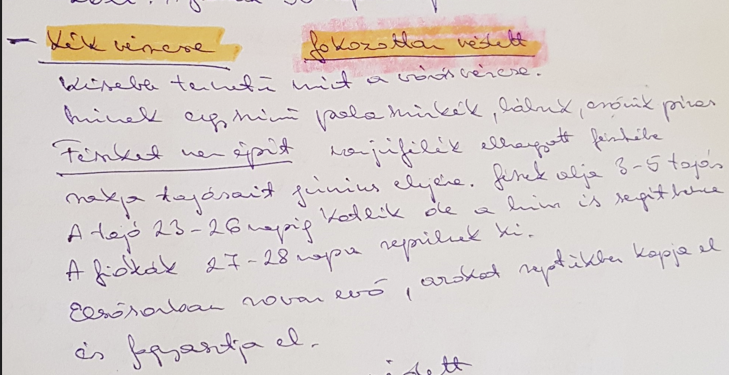 - Kék vércse fokozottan védett
Kisebb termetű mint a vörös vércse.
hímek egyszínű palaszürkék, lábuk, csőrük piros
Fészket nem épít varjúfélék elhagyott fészkébe
rakja tojásait június elején. fészek alja 3-5 tojás
A tojó 23-26 napig kotlik de a hím is segít benne
A fiókák 27-28 napra repülnek ki.
Elsősorban rovarevő, azokat röptükben kapja el
és fogyasztja el.